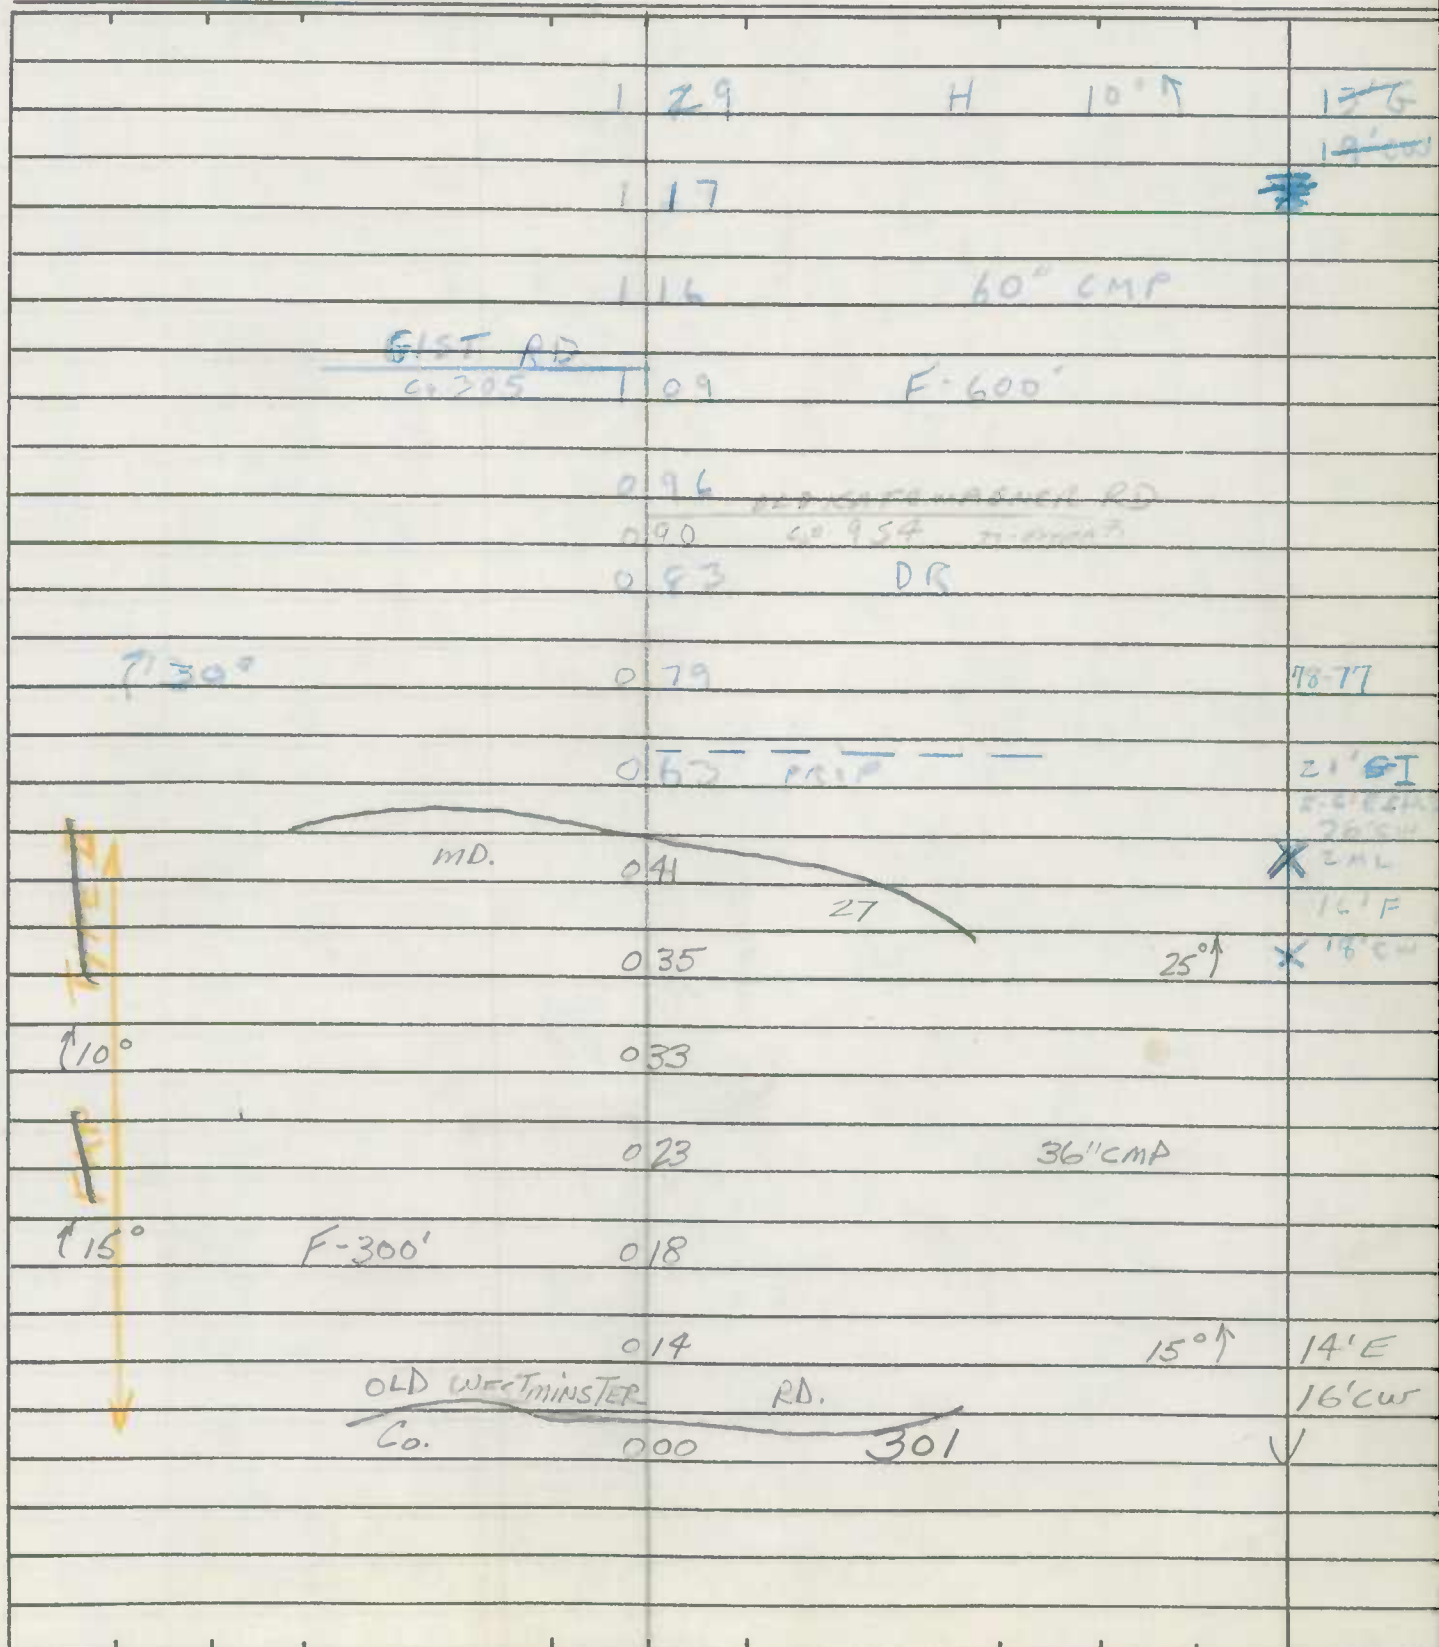 1 29 H 10° ↑ 15' G
19' CW
1 17
1 16 60" CMP
GIST RD
Co 305 1 09 F-600'
0 96 RD
0 90 Co 954
0 83 DR
↑ 30° 0 79 78-77
0 63 21' I
MD. 0 41 2 ML
27 16' F
0 35 25° ↑ 18' CW
↑ 10° 0 33
0 23 36" CMP
↑ 15° F-300' 0 18
0 14 15° ↑ 14' E
OLD WESTMINSTER RD. 16' CW
Co. 0 00 301
FAP